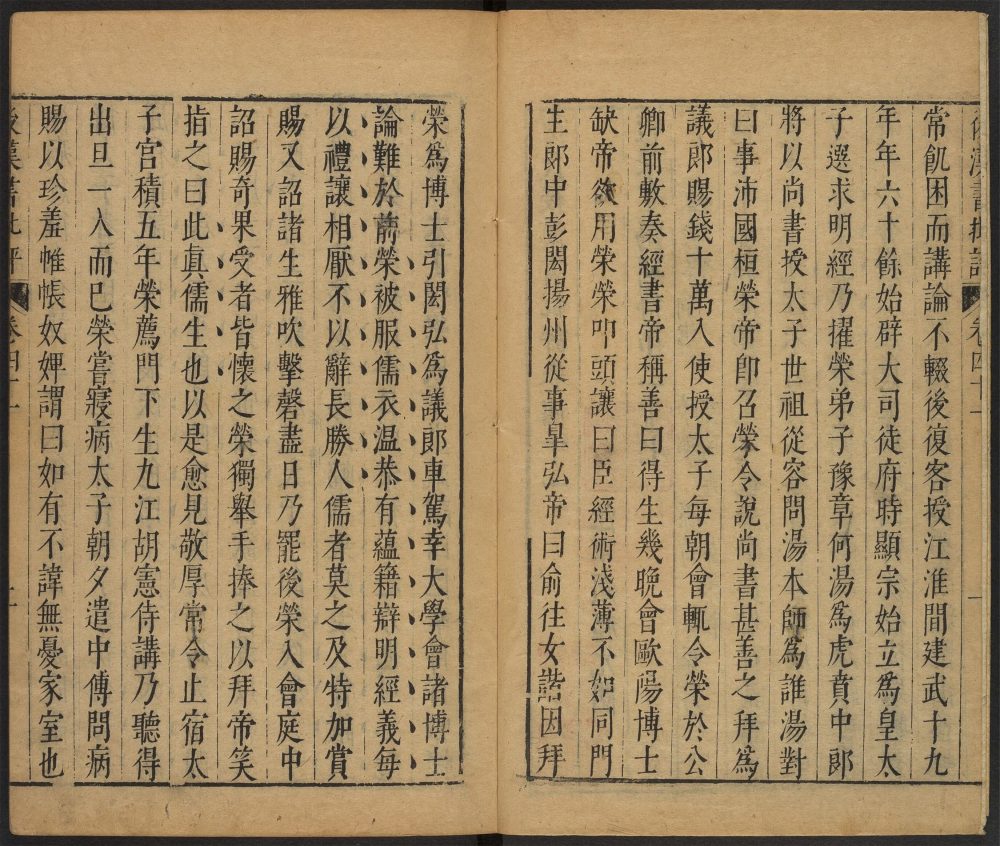 漢書
卷四十一
常飢困而講論不輟後復客授江淮間建武十九
年年六十餘始辟大司徒府時顯宗始立爲皇太
子選求明經乃擢榮弟子豫章何湯爲虎賁中郎
將以尚書授太子世祖從容問湯本師爲誰湯對
曰事沛國桓榮帝卽召榮令說尚書甚善之拜爲
議郎賜錢十萬入使授太子每朝會輒令榮於公
卿前敷奏經書帝稱善曰得生幾晚會歐陽博士
缺帝欲用榮榮叩頭讓曰臣經術淺薄不如同門
生郎中彭閎揚州從事臯弘帝曰俞往女諧因拜
榮爲博士引閎弘爲議郎車駕幸大學會諸博士
論難於前榮被服儒衣温恭有蘊籍辯明經義每
以禮讓相厭不以辭長勝人儒者莫之及特加賞
賜又詔諸生雅吹擊磬盡日乃罷後榮入會庭中
詔賜奇果受者皆懷之榮獨舉手捧之以拜帝笑
指之曰此真儒生也以是愈見敬厚常令止宿太
子宮積五年榮薦門下生九江胡憲侍講乃聽得
出旦一入而已榮嘗寢病太子朝夕遣中傅問病
賜以珍羞帷帳奴婢謂曰如有不諱無憂家室也
漢書批評
卷四十一